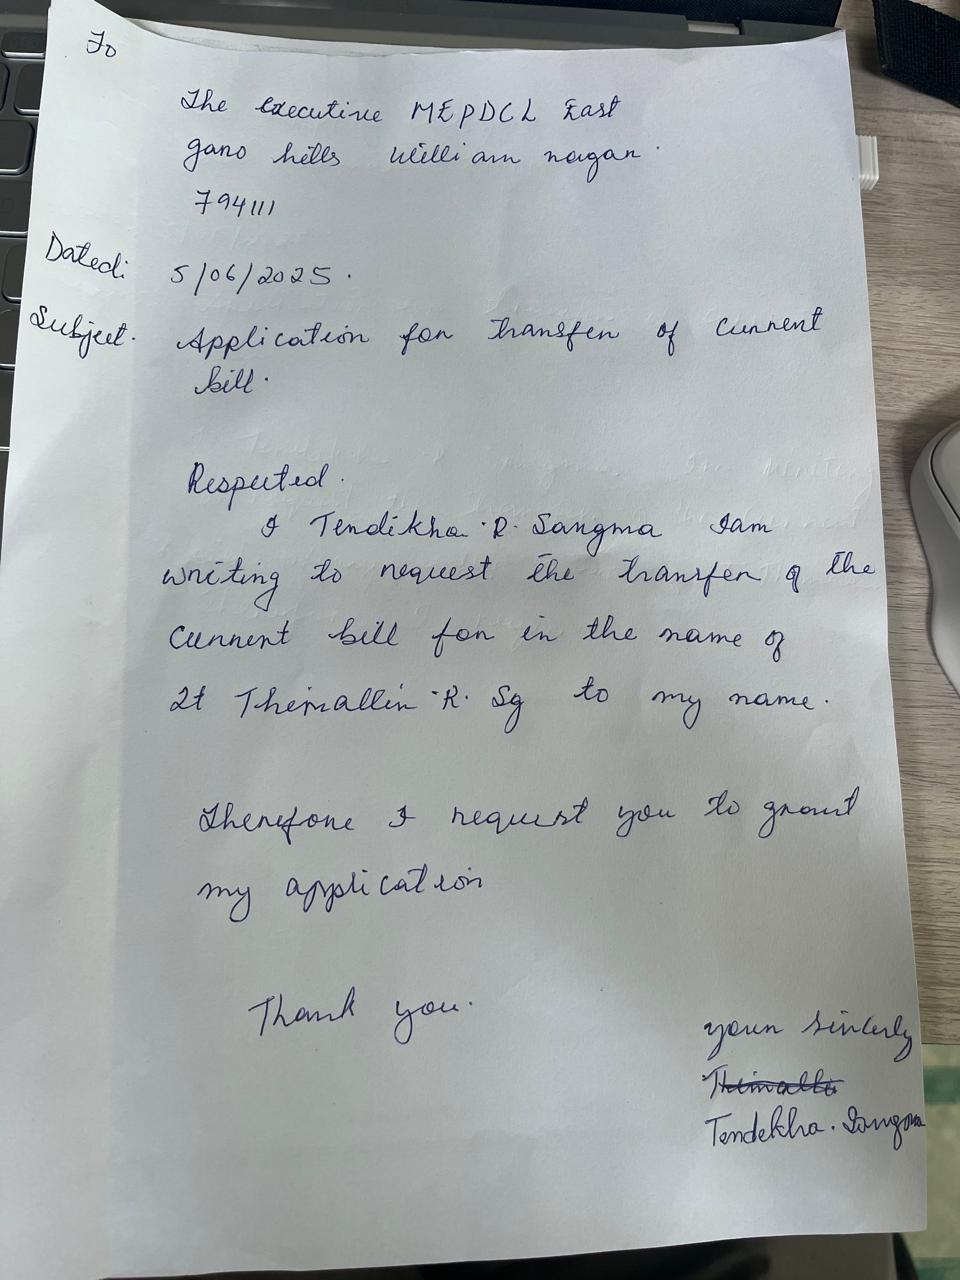 To
The executive MEPDCL East
garo hills William nagar.
794111
Dated: 5/06/2025.
Subject. Application for transfer of current
bill.
Respected.
I Tendikha .R. Sangma Iam
writing to request the transfer of the
current bill for in the name of
Lt Thimallin .R. Sg to my name.
Therefore I request you to grant
my application
Thank you.
your sincerly
Tendekha. Sangma